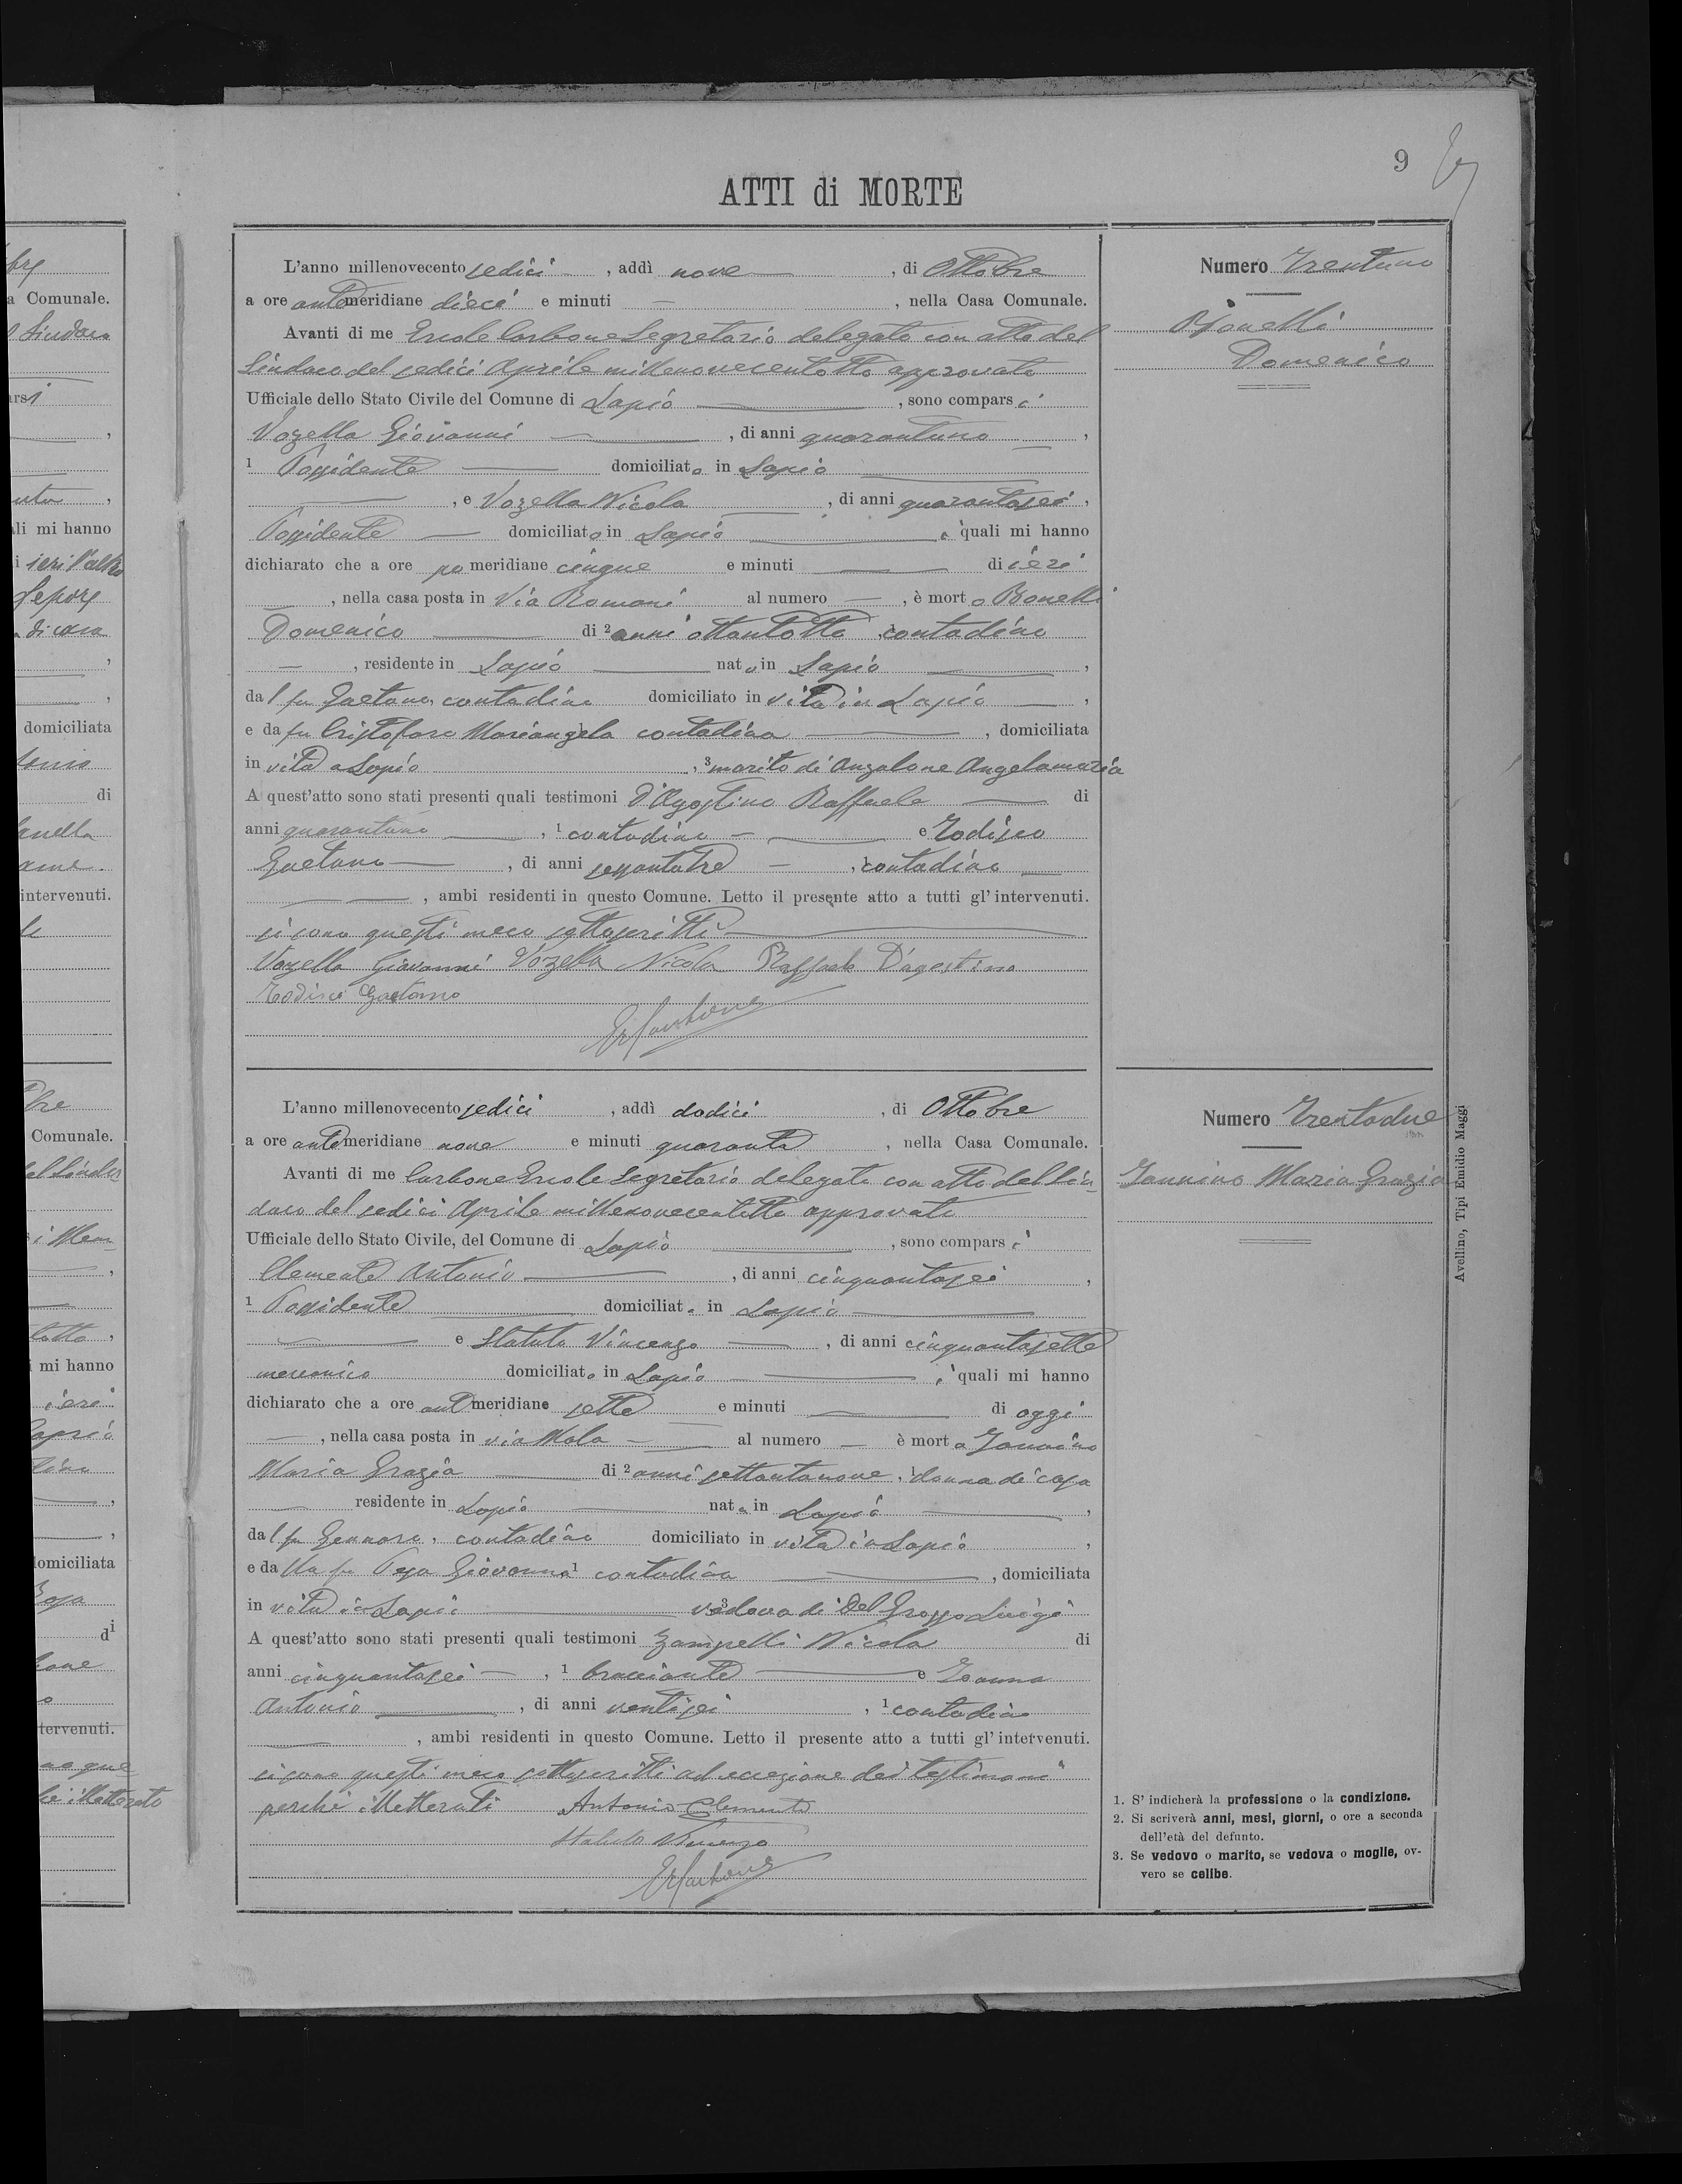 9
ATTI di MORTE
L'anno millenovecento sedici , addì nove , di Ottobre
a ore antemeridiane dieci e minuti — , nella Casa Comunale.
Avanti di me Ercole Carbone Segretario delegato con atto del
Sindaco del sedici Aprile millenovecentotto approvato
Ufficiale dello Stato Civile del Comune di Lapio , sono comparsi
Vozella Giovanni , di anni quarantuno ,
1 Possidente domiciliato in Lapio
, e Vozella Nicola , di anni quarantasei ,
Possidente domiciliato in Lapio , i quali mi hanno
dichiarato che a ore pomeridiane cinque e minuti — di ieri
— , nella casa posta in Via Romani al numero — , è morto Bonelli
Domenico di 2 anni ottantotto , contadino
— , residente in Lapio nato in Lapio ,
dal fu Gaetano, contadino domiciliato in vita in Lapio — ,
e da fu Cristofaro Mariangela contadina , domiciliata
in vita a Lapio , 3 marito di Anzalone Angelamaria
A quest'atto sono stati presenti quali testimoni D'Agostino Raffaele di
anni quarantuno , 1 contadino e Todisco
Gaetano , di anni sessantatre , 1 contadino
, ambi residenti in questo Comune. Letto il presente atto a tutti gl' intervenuti.
si sono questi meco sottoscritti
Vozella Giovanni Vozella Nicola Raffaele D'agostino
Todisco Gaetano
ErCarbone
Numero Trentuno
Bonelli
Domenico
L'anno millenovecento sedici , addì dodici , di Ottobre
a ore antemeridiane nove e minuti quaranta , nella Casa Comunale.
Avanti di me Carbone Ercole Segretario delegato con atto del Sin-
daco del sedici Aprile millenovecentotto approvato
Ufficiale dello Stato Civile, del Comune di Lapio , sono comparsi
Clemente Antonio , di anni cinquantasei ,
1 Possidente domiciliato in Lapio
e Statuto Vincenzo , di anni cinquantasette
meccanico domiciliato in Lapio , i quali mi hanno
dichiarato che a ore antimeridiane sette e minuti — di oggi
— , nella casa posta in via Mala al numero — è morta Iannino
Maria Grazia di 2 anni settantanove , 1 donna di casa
residente in Lapio nata in Lapio ,
dal fu Gennaro , contadino domiciliato in vita in Lapio ,
e da lla fu Giovanna 1 contadina , domiciliata
in vita in Lapio 3 vedova di Del Grosso Luigi
A quest'atto sono stati presenti quali testimoni Zampelli Nicola di
anni cinquantasei , 1 bracciante e
Antonio , di anni ventisei , 1 contadino
, ambi residenti in questo Comune. Letto il presente atto a tutti gl' intervenuti.
si sono questi meco sottoscritti ad eccezione dei testimoni
perchè illetterati Antonio Clemente
Statuto Vincenzo
ErCarbone
Numero Trentadue
Iannino Maria Grazia
1. S' indicherà la professione o la condizione.
2. Si scriverà anni, mesi, giorni, o ore a seconda
dell'età del defunto.
3. Se vedovo o marito, se vedova o moglie, ov-
vero se celibe.
Avellino, Tipi Emidio Maggi